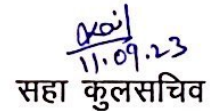 11.09.23
सहा कुलसचिव